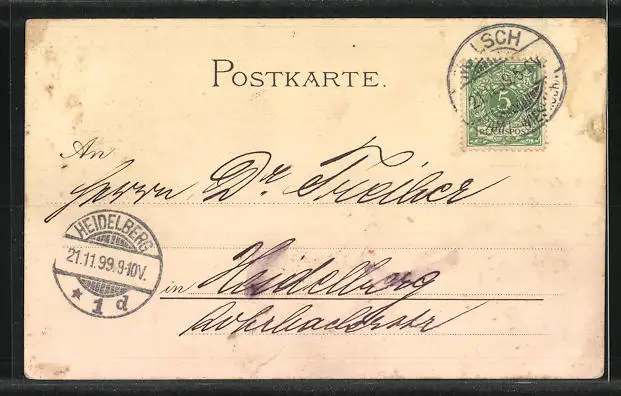 LSCH
POSTKARTE.
5
REICHSPOST
An
Herrn Dr Treiber
HEIDELBERG
21.11.99.9-10V.
* 1 d
in Heidelberg
Rohrbacherstr